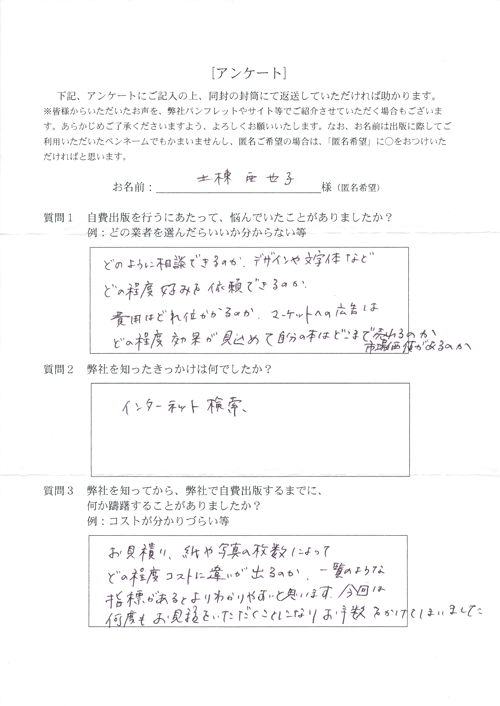 [アンケート]
下記、アンケートにご記入の上、同封の封筒にて返送していただければ助かります。
※皆様からいただいたお声を、弊社パンフレットやサイト等でご紹介させていただく場合もございま
す。あらかじめご了承くださいますよう、よろしくお願いいたします。なお、お名前は出版に際してご
利用いただいたペンネームでもかまいませんし、匿名ご希望の場合は、「匿名希望」に○をおつけいた
だければと思います。
お名前：土棟 亜也子様（匿名希望）
質問１ 自費出版を行うにあたって、悩んでいたことがありましたか？
例：どの業者を選んだらいいか分からない等
どのように相談できるのか、デザインや文字体など
どの程度好みを依頼できるのか、
費用はどれ位かかるのか、マーケットへの広告は
どの程度効果が見込めて自分の本はどこまで売れるのか
市場価値があるのか
質問２ 弊社を知ったきっかけは何でしたか？
インターネット検索、
質問３ 弊社を知ってから、弊社で自費出版するまでに、
何か躊躇することがありましたか？
例：コストが分かりづらい等
お見積り、紙や写真の枚数によって
どの程度コストに違いが出るのか、一覧のような
指標があるとよりわかりやすいと思います。今回は
何度もお見積をいただくことになりお手数をかけてしまいました